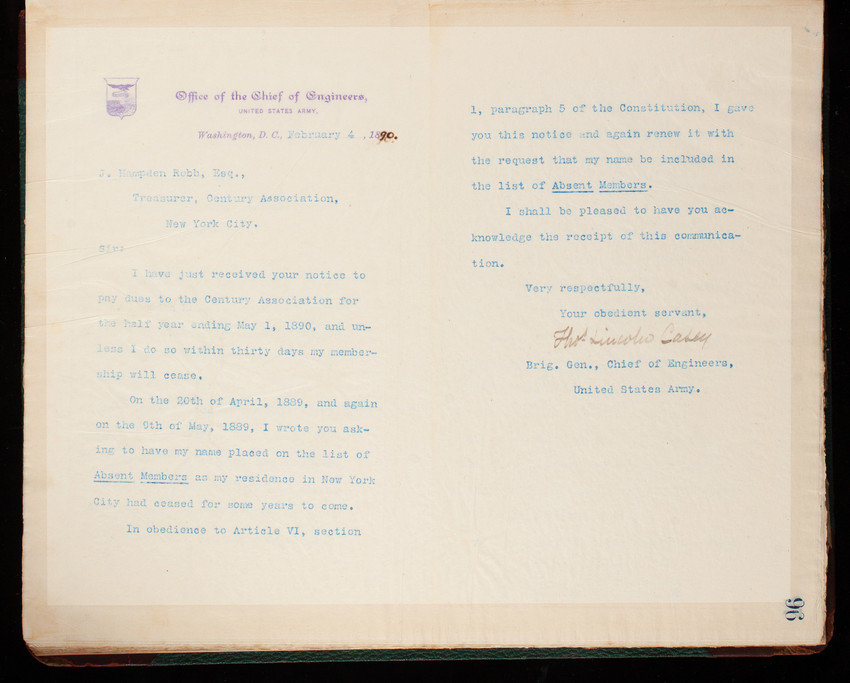 Office of the Chief of Engineers,
UNITED STATES ARMY.
Washington, D. C., February 4, 1890.
J. Hampden Robb, Esq.,
Treasurer, Century Association,
New York City.
Sir:
I have just received your notice to
pay dues to the Century Association for
the half year ending May 1, 1890, and un-
less I do so within thirty days my member-
ship will cease.
On the 20th of April, 1889, and again
on the 9th of May, 1889, I wrote you ask-
ing to have my name placed on the list of
Absent Members as my residence in New York
City had ceased for some years to come.
In obedience to Article VI, section
1, paragraph 5 of the Constitution, I gave
you this notice and again renew it with
the request that my name be included in
the list of Absent Members.
I shall be pleased to have you ac-
knowledge the receipt of this communica-
tion.
Very respectfully,
Your obedient servant,
Thos Lincoln Casey
Brig. Gen., Chief of Engineers,
United States Army.
96